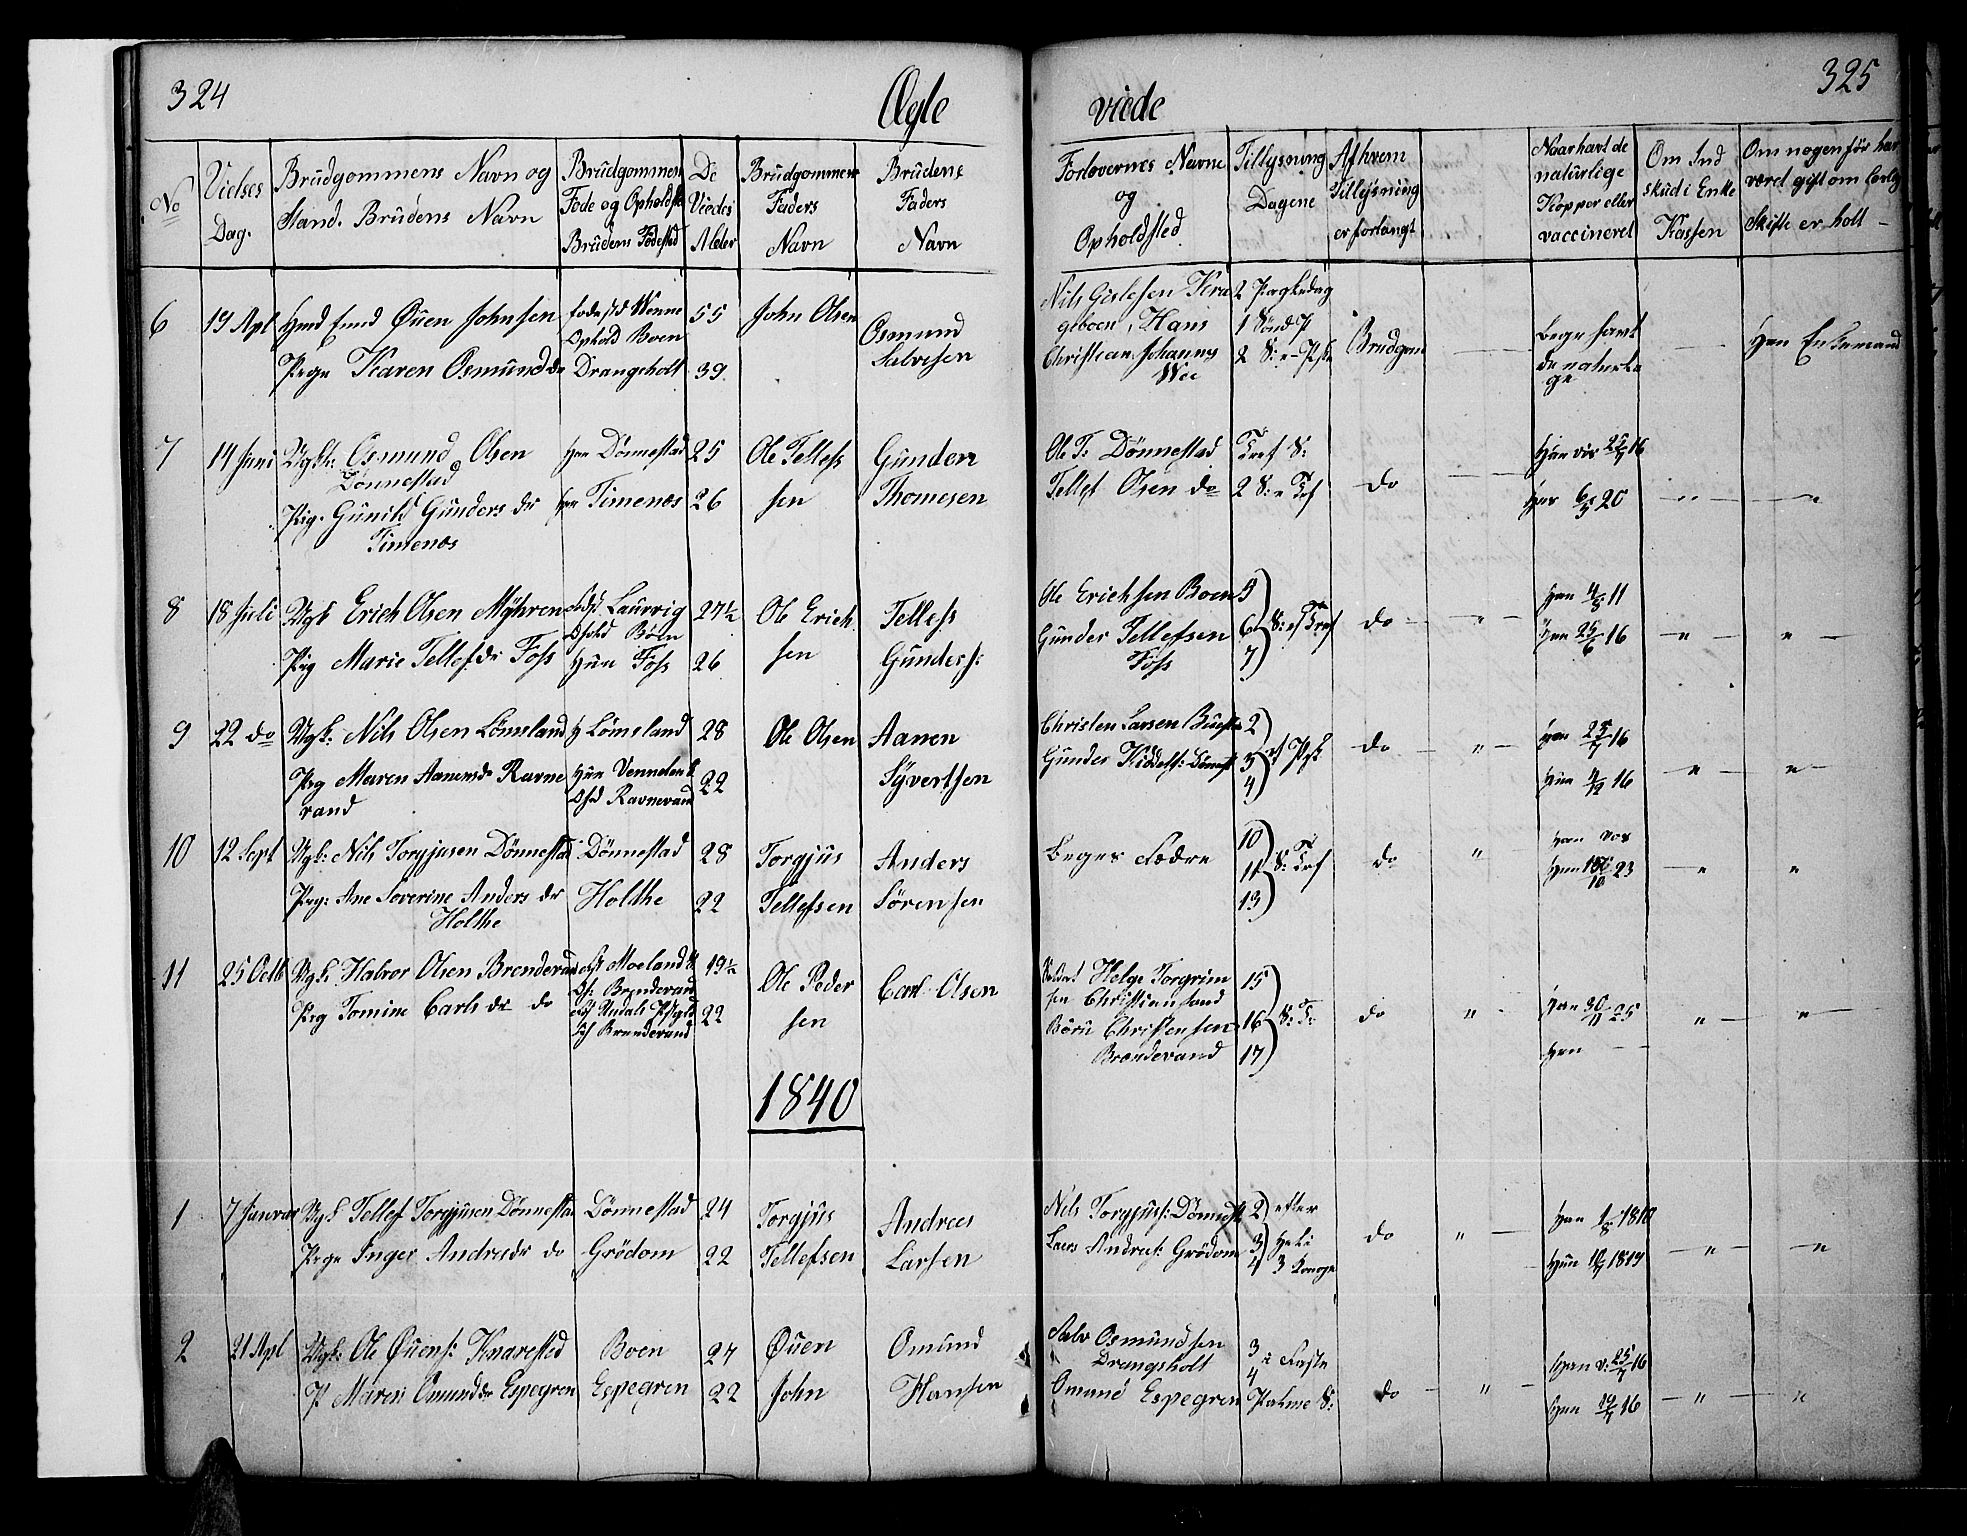 324
Ægte
viede
325
No
Vielses
Dag.
Brudgommens Navn og
Stand. Brudens Navn
Brudgommens
Føde og Opholdste
Brudens Fødested
De
Viedes
Alder
Brudgommens
Faders
Navn
Brudens
Faders
Navn
Forlovernes Navne
og
Opholdsted
Tillysning
Dagene
Af hvem
Tillysning
er forlangt
Naar havt de
naturlige
Kopper eller
vaccineret
Om Ind
skud i Enke
Kassen
Om nogen før har
været gift om
Skifte er holt
6
19 Apl
Ouen Johnsen
Pige Karen Osmundsdr
fødested Wenne
Ophold Boen
Drangsholt
55
39
John Olsen
Osmund
Salvesen
Nils Gislesen Kra
geboen, Hans
Christian Johannes
Wee
2 Paaskedag
1 Sönd P
2 S: e Psk
Brudgom
Bege havt
de naturli
ge
Han Enkemand
7
14 Juni
Ugk: Osmund Olsen
Dönnestad
Pig. Gunild Gunders dr
Timenæs
Han Dönnestad
hun Timenæs
25
26
Ole Tellefs
sen
Gunder
Thomesen
Ole T: Dönnestad
Tellef Olsen do
Tref S:
2 S: e Trf
do
Han 25/7 16
Hun 6/5 20
8
18 Juli
Ugk Erich Olsen Myhren
Pig Marie Tellefsdr Foss
Laurvig
Ophold Boen
Hun Foss
27½
26
Ole Erich
sen
Tellefs
Gunders:
Ole Erichsen Boen
Gunder Tellefsen
Foss
5
6
7
S: ef Tref
do
Han 4/8 11
Hun 25/6 16
9
22 do
Ugk: Nils Olsen Lömsland
Pig Maren Aanensdr Ravne
vand
H Lömsland
Hun Vennesland
Ohd Ravnevand
28
22
Ole Olsen
Aanen
Syvertsen
Christen Larsen
Gunder
2
3
4
ef Psk
do
Han 25/7 16
Hun 4/7 16
10
12 Sept
Ugk: Nils Torgjusen Dönnestad
Pig: Ane Severine Anders dr
Holthe
Dönnestad
Holthe
28
22
Torgjus
Tellefsen
Anders
Sörensen
Beges Fædre
10
11
13
S: Trf
do
Han var
Hun 23
11
25 Octb
Ugk Halvor Olsen Brendevand
Pig Tomine Carls dr do
Moeland
Oh: Brendevand
Undals Præstgd
Oh Brendevand
19½
22
Ole Peder
sen
Carl Olsen
Helge Torgrim
sen Christiansand
Börü Christensen
Brændevand
15
16
17
S: T:
do
Han 30/11 25
Hun
1840
1
7 Januar
Ugk Tellef Torgjusen Dönnestad
Pige Inger Andreasdr do
Dönnestad
Grödom
24
22
Torgjus
Tellefsen
Andreas
Larsen
Nils Torgjuss: Dönnest
Lars Andreas: Grödom
2
3
4
efter
Heli
3 Konge
do
Han 1/8 1810
Hun 1819
2
21 Apl
Ugk: Ole Ouens: Knarestad
P Maren Omundsdr Espegren
Boen
Espegren
27
22
Ouen
John
Omund
Hansen
Salv Osmundsen
Drangsholt
Omund Espegren
3
4
i Faste
Palme S:
do
Han v: 25/7 16
Hun 19/7 16